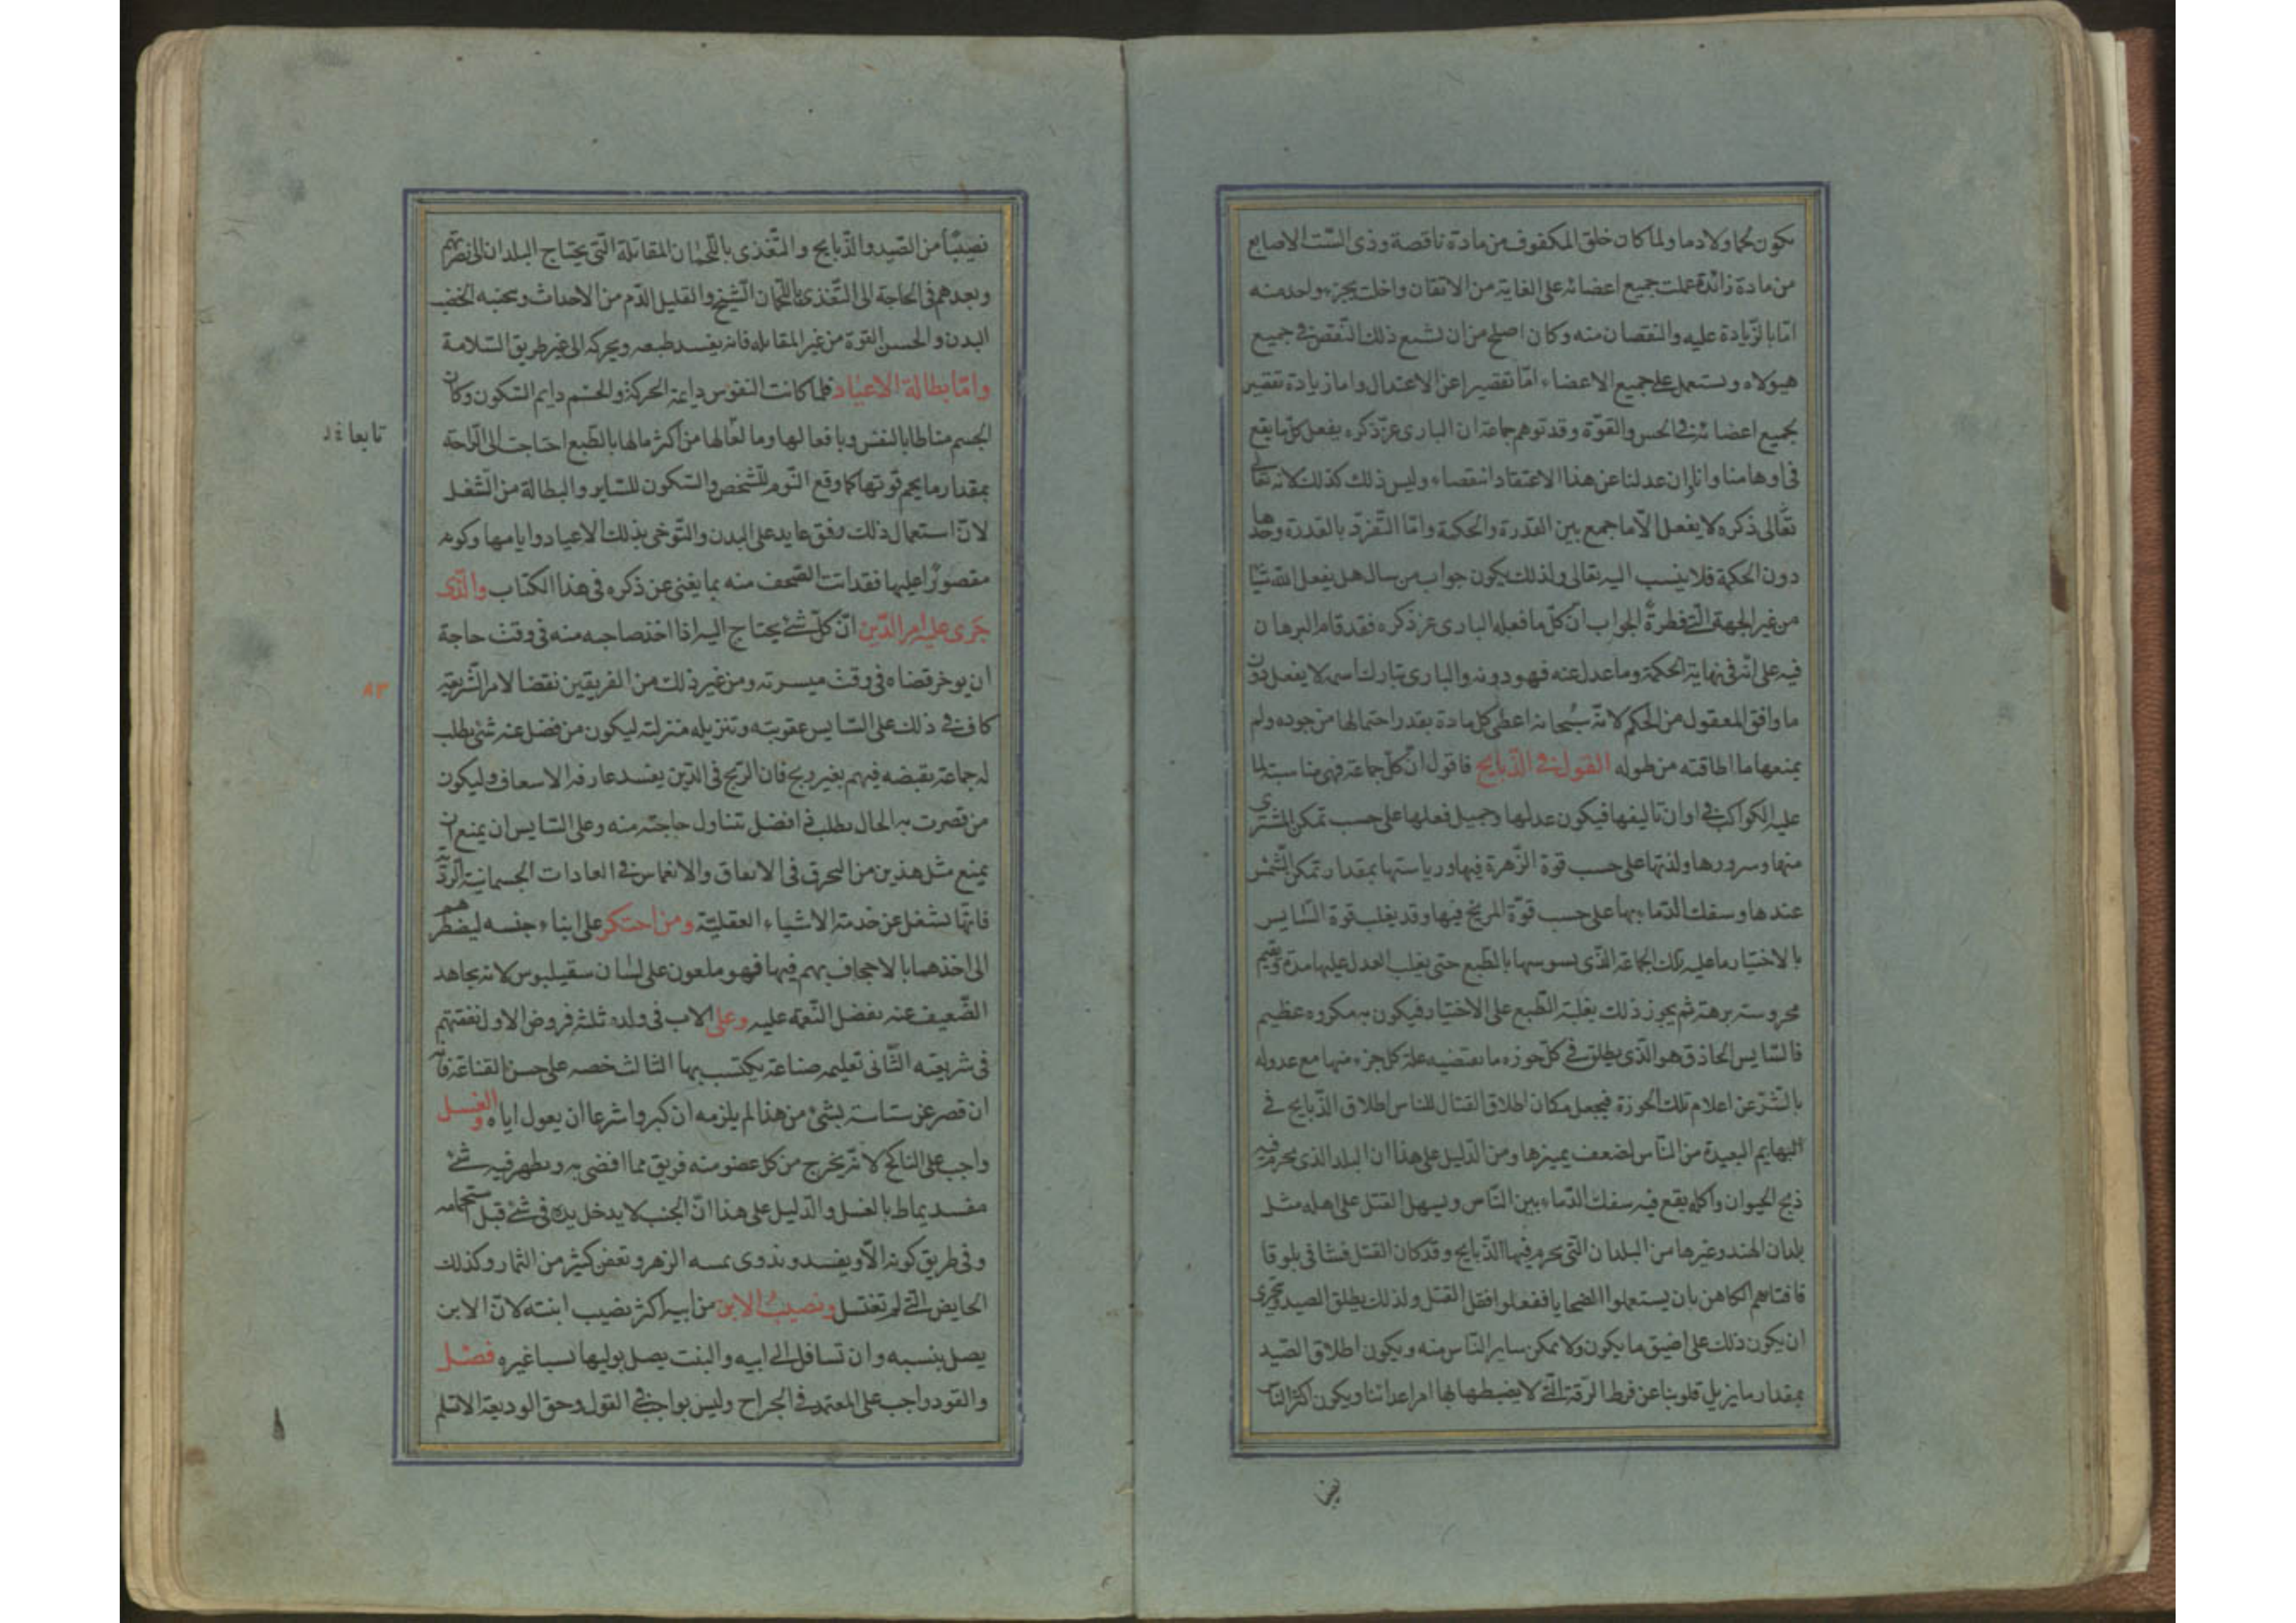 يكون لحما ولا دما ولما كان خلق المكفوف من مادة ناقصة وذى الست الاصابع
من مادة زائدة عملت جميع اعضائه على الغاية من الاتقان واخلت بجزء واحد منه
امّا بالزّيادة عليه والنقصان منه وكان اصلح من ان تشيع ذلك النّقص فى جميع
هيولاه ويستعمل على جميع الاعضاء امّا تقصيرا عن الاعتدال واما زيادة
بجميع اعضائه فى الحس والقوّة وقد توهم جماعة ان البارى عزّ ذكره يفعل كلّ ما يقع
فى اوهامنا وانا ان عدلنا عن هذا الاعتقاد وليس ذلك كذلك لانه تعالى
تعالى ذكره لا يفعل الّا ما جمع بين القدرة والحكمة وامّا التّفرّد بالقدرة وحدها
دون الحكمة فلا ينسب اليه تعالى ولذلك يكون جواب من سال هل يفعل الله شيئا
من غير الجهة الّتى فطره الجواب انّ كلّ ما فعله البارى عز ذكره فقد قام البرهان
فيه على انّه فى نهاية الحكمة وما عدل عنه فهو دونه والبارى تبارك اسمه لا يفعل دون
ما وافق المعقول من الحكم لانّه سُبحانه اعطى كل مادة بقدر احتمالها من جوده ولم
يمنعها ما اطاقته من طوله القول فى الذّبايح فاقول انّ كلّ جماعة فهى مناسبة لما
عليه الكواكب فى اوان تاليفها فيكون عدلها وجميل فعلها على حسب تمكن المشترى
منها وسرورها ولذتها على حسب قوة الزّهرة فيها ورياستها بمقدار تمكن الشّمس
عندها وسفك الدّماء بها على حسب قوّة المريخ فيها وقد يغلب قوة السّايس
بالاختيار ما عليه تلك الجماعة الّذى يسوسها بالطبع حتى يغلب العدل عليها مدة وتقيم
محروسته برهة ثم يجوز ذلك بغلبة الطّبع على الاختيار فيكون به مكروه عظيم
فالسّايس الحاذق هو الّذى يطلق فى كلّ حوزه ما تقتضيه علة كل جزء منها مع عدوله
بالشّر عن اعلام تلك الحوزة فيجعل مكان اطلاق القتال للناس اطلاق الذّبايح فى
البهايم البعيدة من النّاس لضعف يميزها ومن الدّليل على هذا ان البلد الذى يحرم فيه
ذبح الحيوان واكله يقع فيه سفك الدّماء بين النّاس ويسهل القتل على اهله مثل
بلدان الهند وغيرها من البلدان الّتى يحرم فيها الذّبايح وقد كان القتل فشا فى بلوقا
فافتاهم الكاهن بان يستعملوا الضحايا ففعلوا فقل القتل ولذلك يطلق الصيد ويجرى
ان يكون ذلك على اضيق ما يكون ولا يمكن ساير النّاس منه ويكون اطلاق الصّيد
بمقدار ما يزيل قلوبنا عن فرط الرّقة الّتى لا يضبطها لها امر اعدائنا ويكون اكثر النّاس
نصيبًا من الصّيد والذّبايح والتّغذى باللّحمان المقاتلة الّتى يحتاج البلدان الى نصرتهم
وبعدهم فى الحاجة الى التّغذى باللّحمان الشّيخ والقليل الدّم من الاحداث
البدن والحسن القوّة من غير المقاتله فانه يفسد طبعه ويحركه الى غير طريق السّلامة
وامّا بطالة الاعياد فلما كانت النفوس داعية الحركة والجسم دايم السّكون وكان
الجسم مناطا بالنفس وبافعالها وما لها من اكثر مالها بالطّبع احتاجت الى الرّاحة
تابعا
بمقدار ما يجم قوّتها كما وقع النّوم للشّخص والسّكون للسّاير والبطالة من الشّغل
لانّ استعمال ذلك رفق عايد على البدن والتّوخى بذلك الاعياد وايامها وكونه
مقصورًا عليها فقد اتت الصّحف منه بما يغنى عن ذكره فى هذا الكتاب والّذى
جَرى عليه امر الدّين انّ كلّ شئ يحتاج اليه اذا اخذ صاحبه منه فى وقت حاجة
ان يوخر قضاه فى وقت ميسرته ومن غير ذلك من الفريقين نقضا لامر الشّريعة
٨٣
كان فى ذلك على السّايس عقوبته وتنزيله منزلته ليكون من فضل عنه شئ يطلب
له جماعة بقبضه فيهم بغير ربح فان الرّبح فى الدّين يفسد عارفه الاسعاف وليكون
من قصرت به الحال يطلب فى افضل تناول حاجته منه وعلى السّايس ان يمنع ان
يمنع مثل هذين من التحرق فى الانفاق والانغماس فى العادات الجسمانية الرّديّة
فانّها تشغل عن خدمة الاشياء العقليّة ومن احتكر على ابناء جنسه ليضطرهم
الى اخذهما بالاجحاف بهم فيها فهو ملعون على لسان سقيلبوس لانه يجاهد
الضّعيف عنه بفضل النّعمة عليه وعلى الاب فى ولده ثلثة فروض الاول نفقتهم
فى شريعته الثّانى تعليمه صناعة يكتسب بها الثالث حضه على حسن القناعة فانه
ان قصر عن سياسته بشئ من هذا لم يلزمه ان كبر واشرعا ان يعول اياه والغسل
واجب على الناكح لانّه يخرج من كل عضو منه فريق مما افضى به ويظهر فيه شئ
مفسد يماط بالغسل والدّليل على هذا انّ الجنب لا يدخل يده فى شئ قبل استحمامه
وفى طريق كونه الّا ويفسد ويذوى بمسه الزهر وتعفن كثير من الثمار وكذلك
الحايض الّتى لم تغتسل ونصيبُ الابن من ابيه اكثر نصيب ابنته لانّ الابن
يصل بنسبه وان تسافل الى ابيه والبنت يصل بوليها نسبا غيره فصْل
والقود واجب على المعتمد فى الجراح وليس بواجب فى القول وحق الوديعة الا تثلم